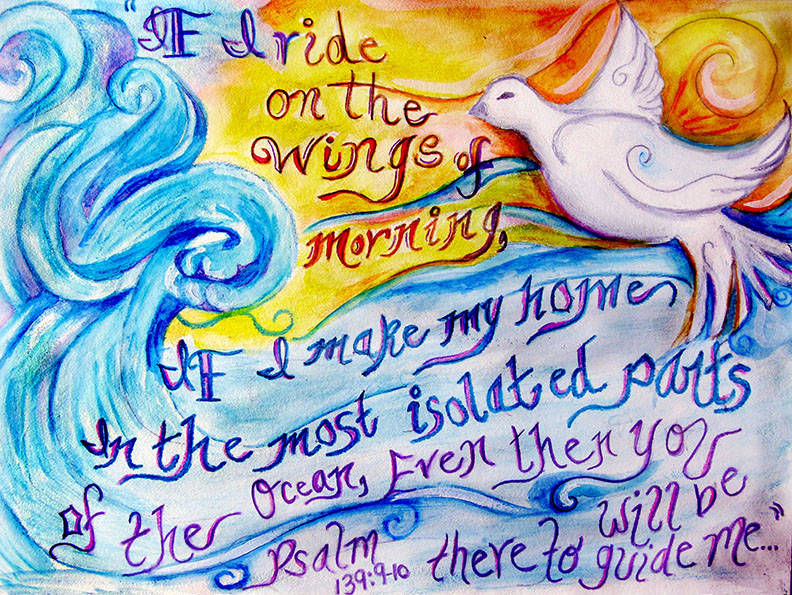 "If I ride
on the
wings of
morning,
If I make my home
In the most isolated parts
of the Ocean, Even then you
will be
there to guide me..."
Psalm
139:9-10